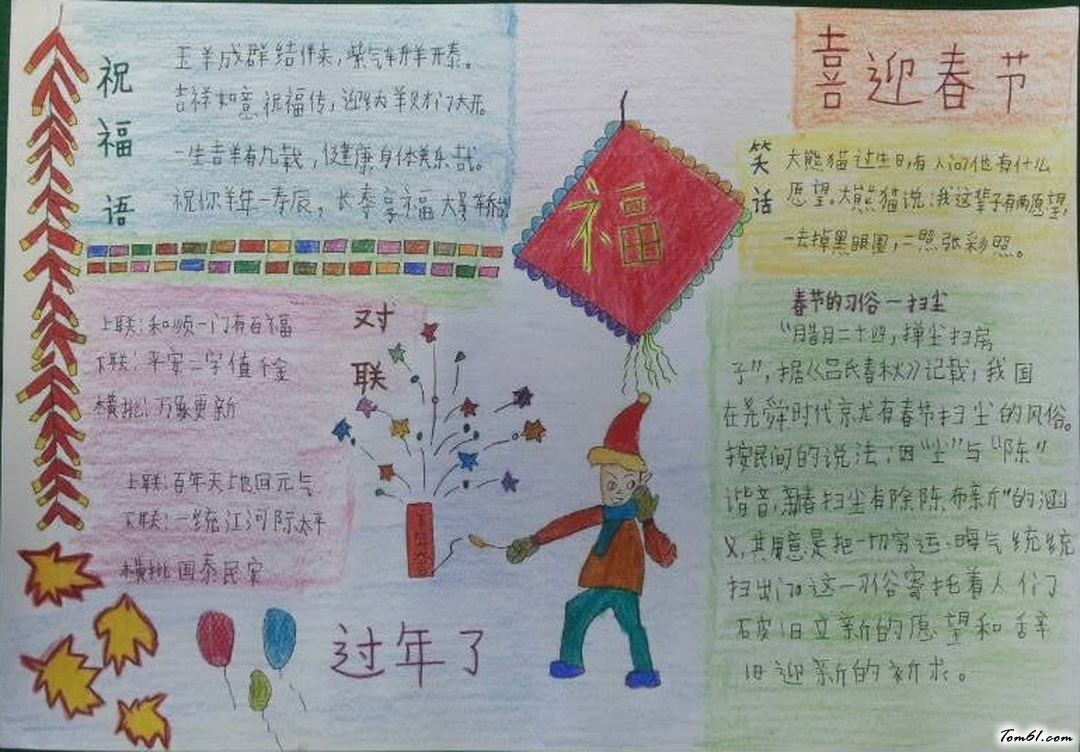 喜迎春节
祝福语
玉羊成群结伴来，紫气羊开泰。
吉祥如意祝福传，迎纳羊财门大开
一生吉羊有几载，促健康身体美乐哉。
祝你羊年一春辰，长泰享福大
笑话
大熊猫过生日，有人问他有什么
愿望。大熊猫说：我这辈子有两愿望，
一去掉黑眼圈，二照张彩照。
福
对联
上联：和顺一门有百福
下联：平安二字值千金
横批：万象更新
上联：百年天地回元气
下联：一统江河际太平
横批 国泰民安
春节的习俗—扫尘
"腊月二十四，掸尘扫房
子"，据《吕氏春秋》记载，我国
在尧舜时代京尤有春节扫尘的风俗。
按民间的说法：因"尘"与"陈"
谐音，新春扫尘有除陈布新"的涵
义，其用意是把一切穷运、晦气统统
扫出门。这一习俗寄托着人们
破旧立新的愿望和辞
旧迎新的祈求。
过年了
Tom61.com